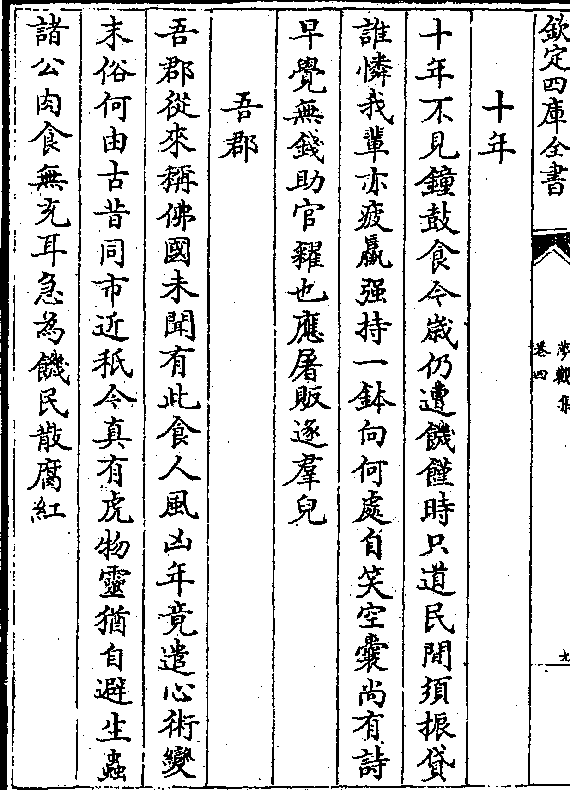 欽定四庫全書
夢觀集
卷四
九
十年
十年不見鐘鼓食今歲仍遭饑饉時只道民間須振貸
誰憐我輩亦疲羸强持一鉢向何處自笑空囊尚有詩
早覺無錢助官糴也應屠販逐羣兒
吾郡
吾郡從來稱佛國未聞有此食人風凶年竟遣心術變
末俗何由古昔同市近秖今真有虎物靈猶自避生蟲
諸公肉食無充耳急為饑民散腐紅